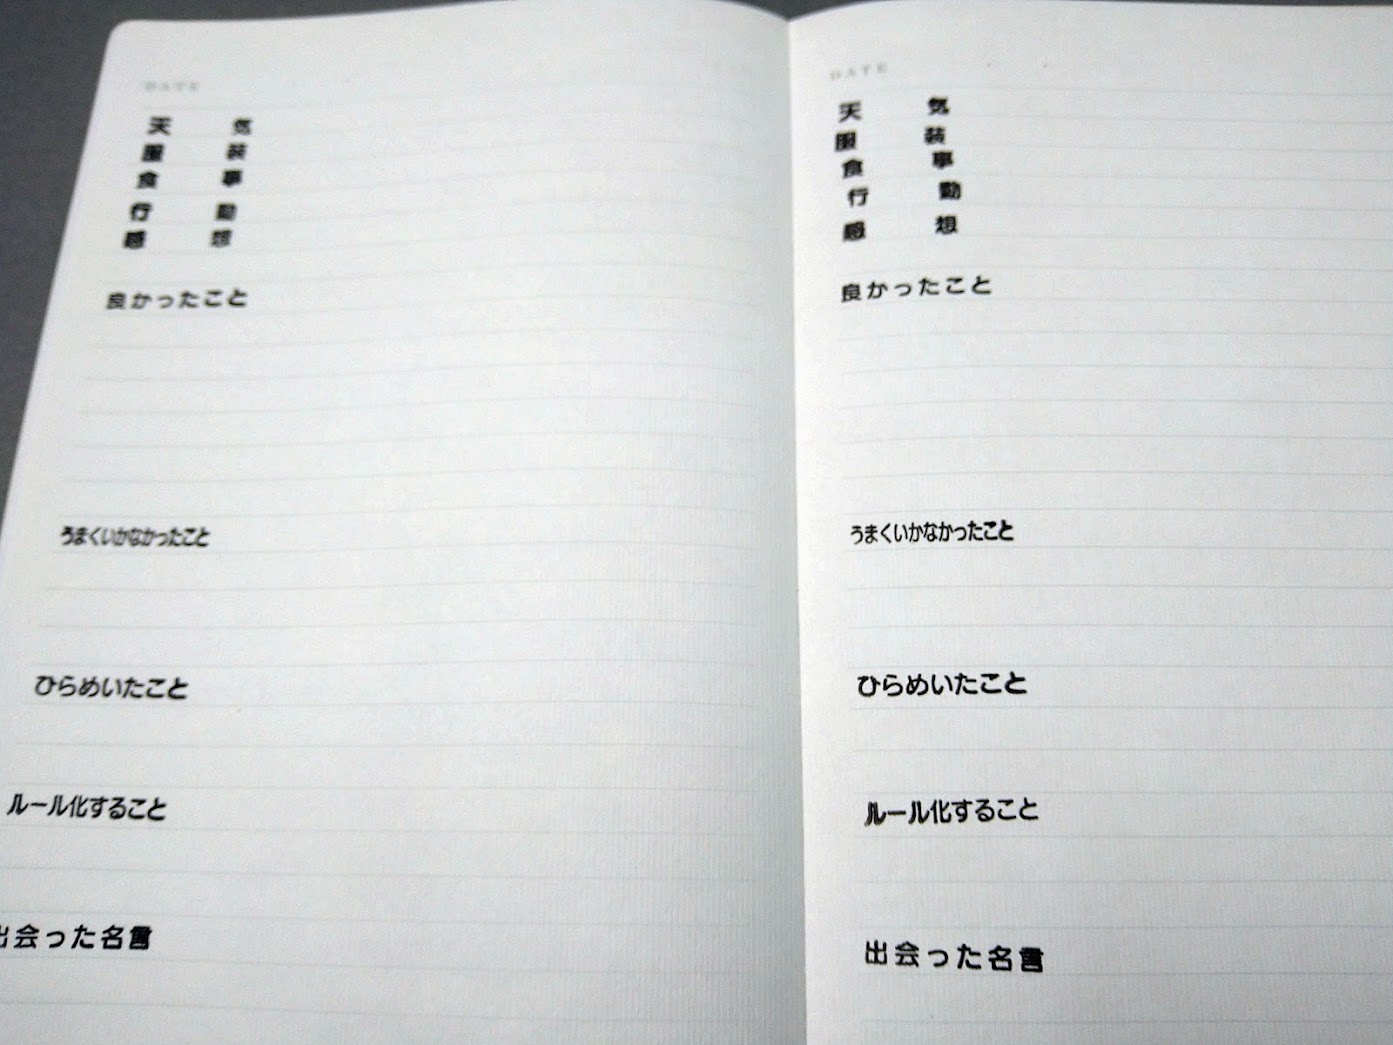 DATE
天 気
服 装
食 事
行 動
感 想
良かったこと
うまくいかなかったこと
ひらめいたこと
ルール化すること
出会った名言
DATE
天 気
服 装
食 事
行 動
感 想
良かったこと
うまくいかなかったこと
ひらめいたこと
ルール化すること
出会った名言